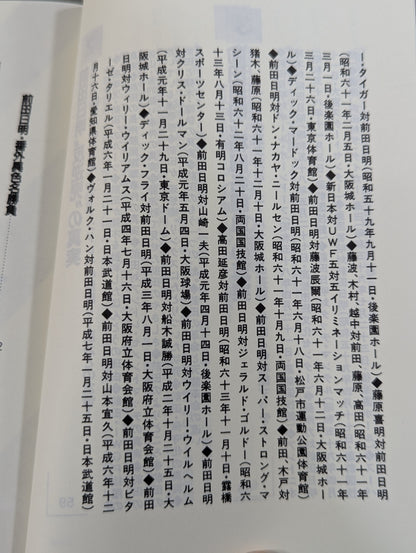 ー・タイガー対前田日明(昭和五十九年九月一日・後楽園ホール)◆藤原喜明対前田日明
(昭和六十一年二月五日・大阪城ホール)◆藤波、木村、越中対前田、藤原、高田(昭和六十一年
三月一日・後楽園ホール)◆新日本対UWF五対五イリミネーションマッチ(昭和六十一年
三月二六日・東京体育館)◆前田日明対藤波辰爾(昭和六十一年六月十二日・大阪城ホー
ル)◆ディック・マードック対前田日明(昭和六十一年六月十八日・松戸市運動公園体育館)
◆前田日明対ドン・ナカヤ・ニールセン(昭和六十一年十月九日・両国国技館)◆前田、木戸対
猪木、藤原(昭和六十一年十二月十日・大阪城ホール)◆前田日明対スーパー・ストロング・マ
シーン(昭和六十二年八月二十日・両国国技館)◆前田日明対ジェラルド・ゴルドー(昭和六
十三年八月十三日・有明コロシアム)◆高田延彦対前田日明(昭和六十三年十一月十日・露橋
スポーツセンター)◆前田日明対山崎一夫(平成元年四月十四日・後楽園ホール)◆前田日明
対クリス・ドールマン(平成元年五月四日・大阪球場)◆前田日明対ウイリー・ウイルヘルム
(平成元年十一月二十九日・東京ドーム)◆前田日明対船木誠勝(平成二年十二月二十五日・大
阪城ホール)◆ディック・フライ対前田日明(平成三年八月一日・大阪府立体育会館)◆前田
日明対ウィリー・ウイリアムス(平成四年七月十六日・大阪府立体育会館)◆前田日明対ビタ
ーゼ・タリエル(平成六年一月二十一日・日本武道館)◆前田日明対山本宜久(平成六年十二
月十六日・愛知県体育館)◆ヴォルク・ハン対前田日明(平成七年一月二十五日・日本武道館)
前田日明・番外異色名勝負